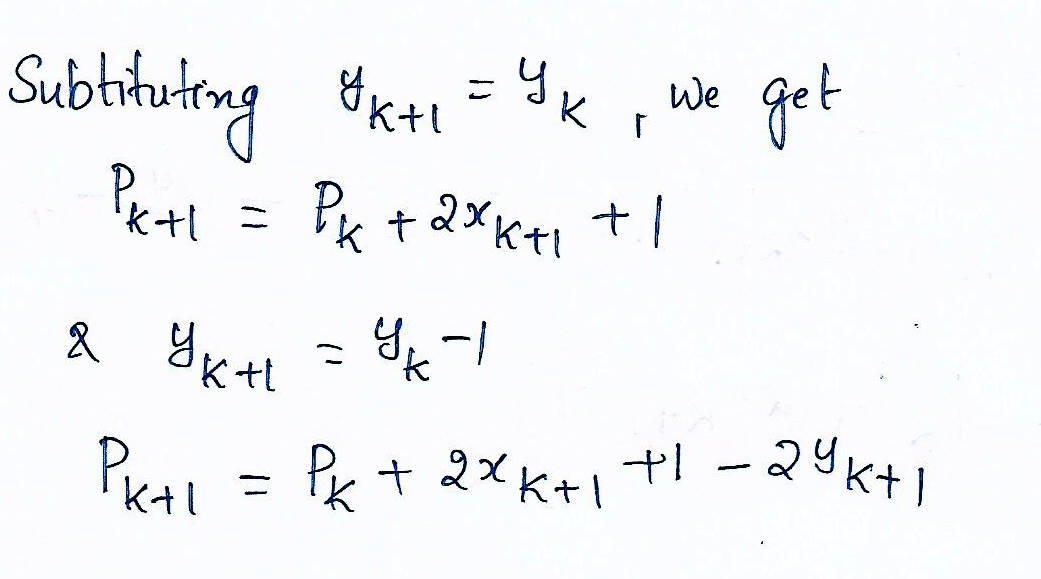 Subtituting y_{k+1} = y_k, we get
P_{k+1} = P_k + 2x_{k+1} + 1
& y_{k+1} = y_k - 1
P_{k+1} = P_k + 2x_{k+1} + 1 - 2y_{k+1}